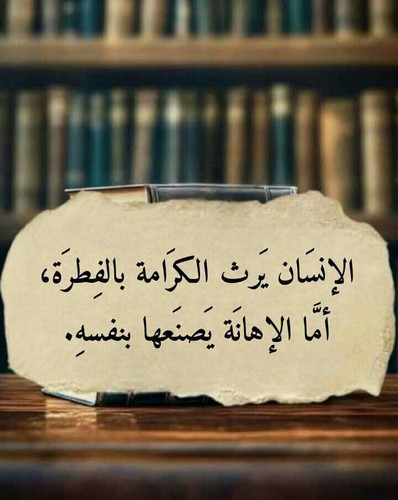 الإنسَان يَرث الكرَامة بالفِطرَة،
أمَّا الإهانَة يَصنَعها بنفسهِ.